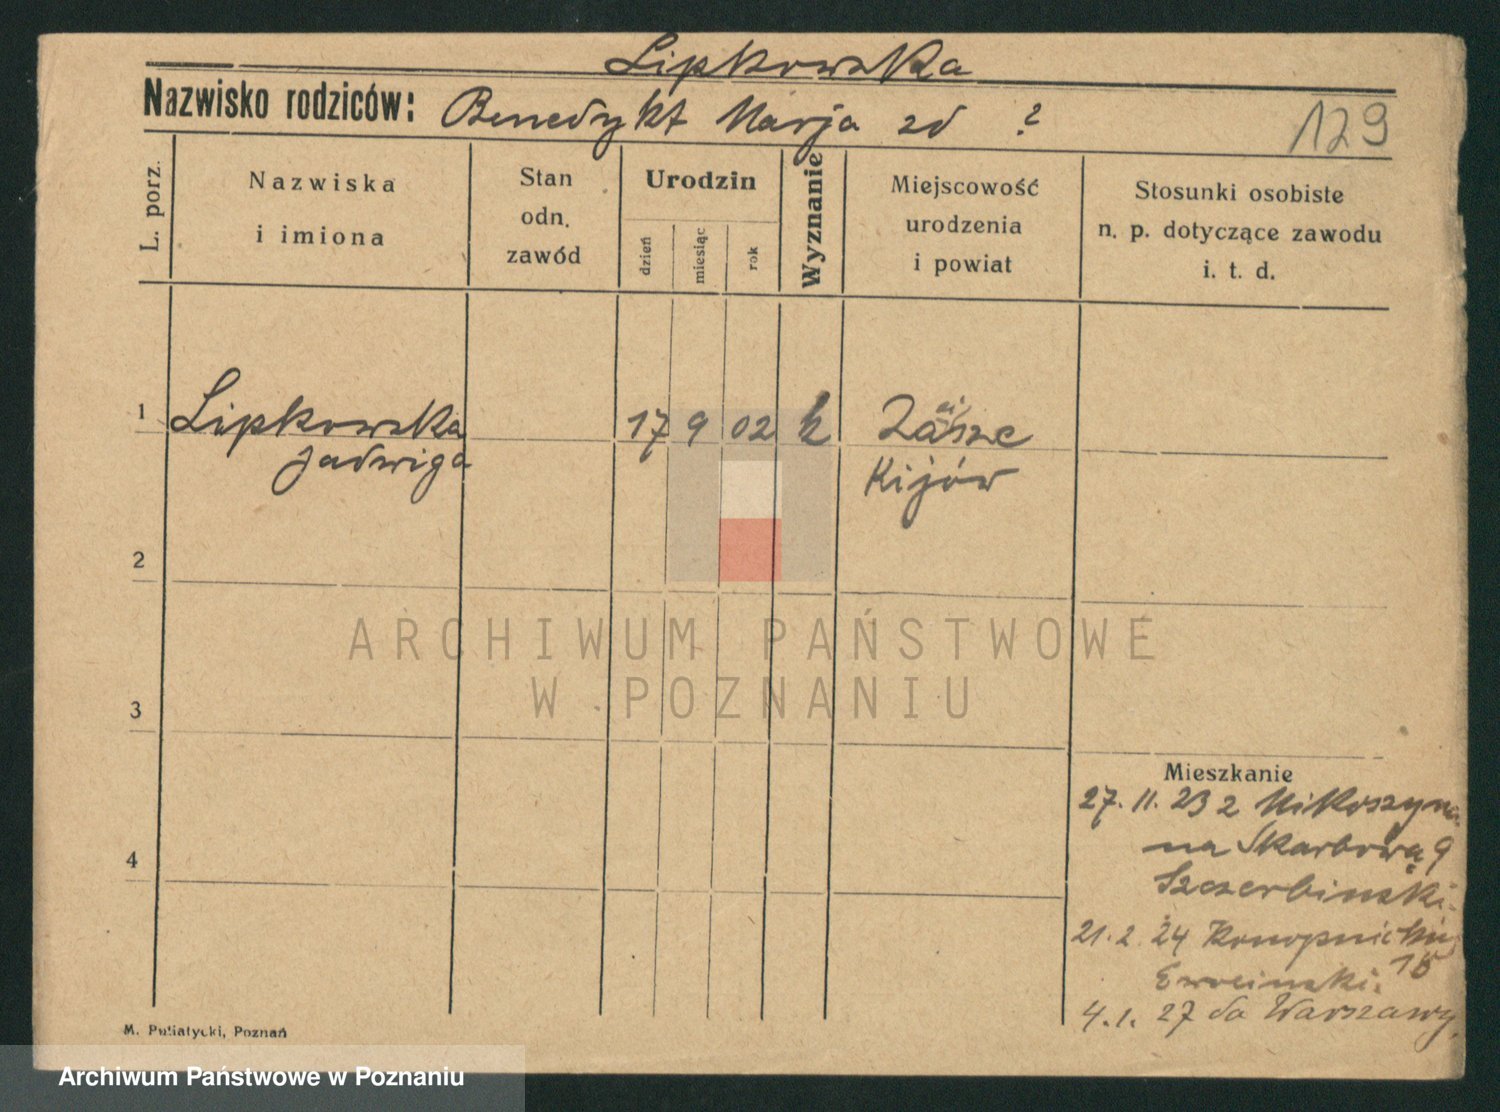 Lipkowska
Nazwisko rodziców: Benedykt Marja zd ?
129
L. porz.
Nazwiska
i imiona
Stan
odn.
zawód
Urodzin
dzień
miesiąc
rok
Wyznanie
Miejscowość
urodzenia
i powiat
Stosunki osobiste
n. p. dotyczące zawodu
i. t. d.
1 Lipkowska 17 9 02 k
Jadwiga Kijów
2
ARCHIWUM PAŃSTWOWE
W POZNANIU
3
Mieszkanie
27. 11. 23 z
na Skarbową 9
Szczerbinski.
4
21. 2. 24
18
4. 1. 27 do Warszawy.
M. Putiatycki, Poznań
Archiwum Państwowe w Poznaniu